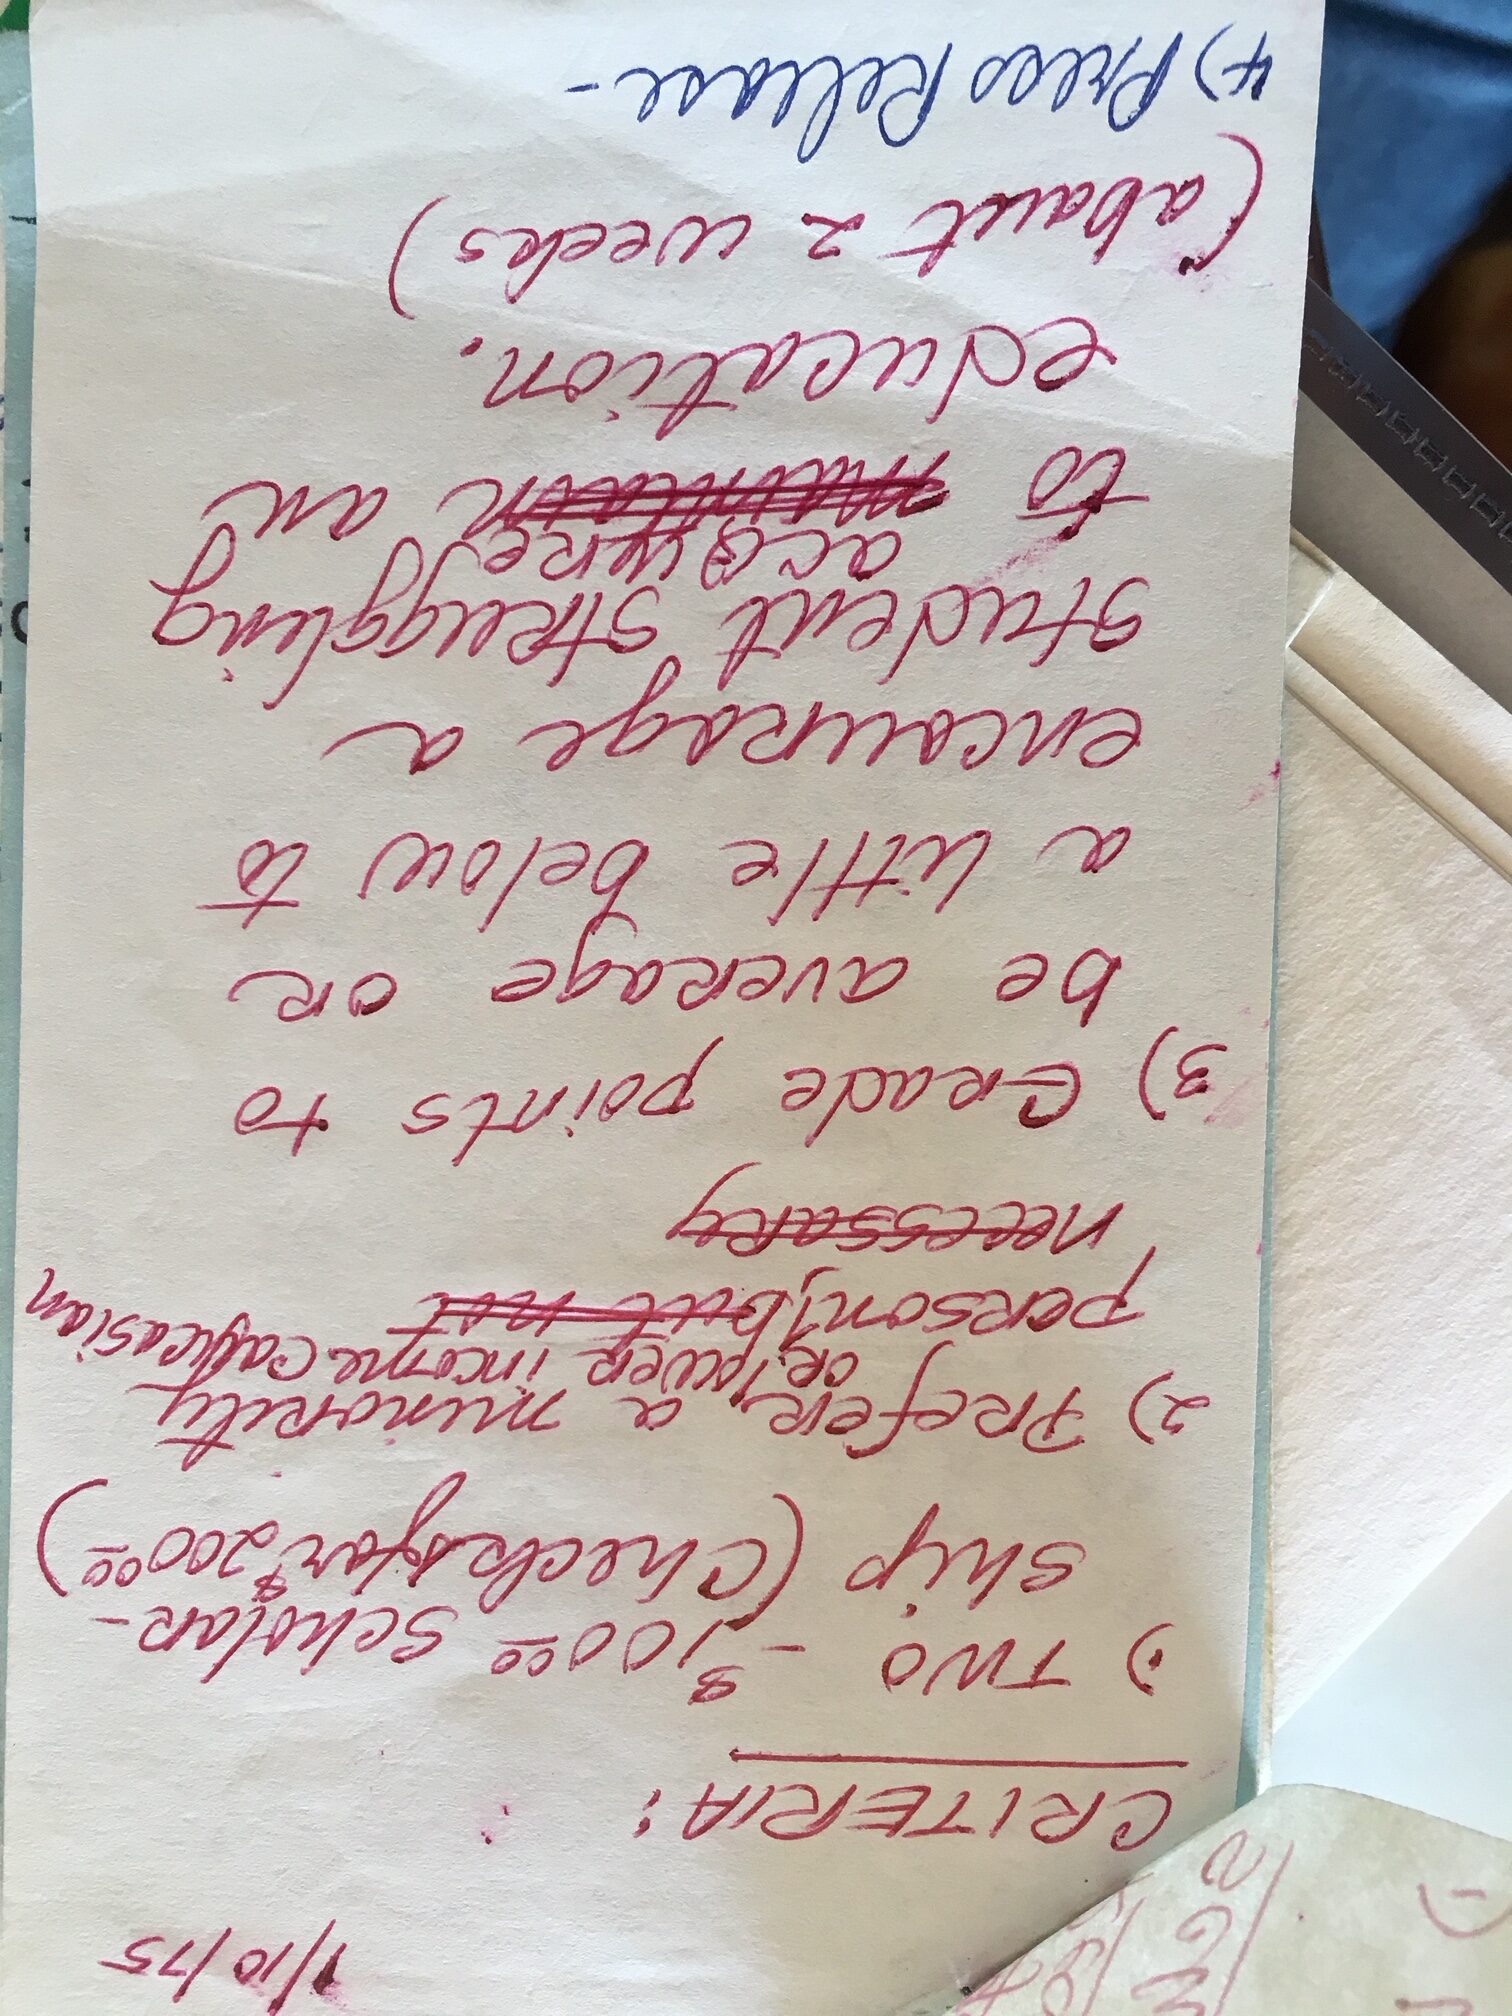 1/10/75
CRITERIA:
1) TWO - $100⁰⁰ SCHOLAR-
SHIP (Check for $200⁰⁰)
2) PREFER a minority
OR lower income Caucasian
person, but not
necessary
3) Grade points to
be average or
a little below to
encourage a
student struggling
acquire
to maintain an
education.
(about 2 weeks)
4) Press Release -